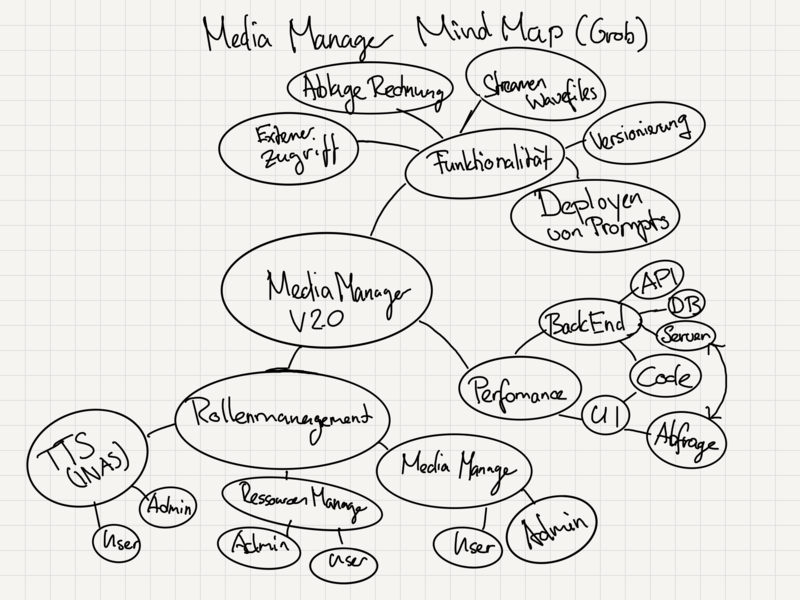 Media Manager Mind Map (Grob)
Ablage Rechnung
Streamen
Wavefiles
Externer
Zugriff
Funktionalität
Versionierung
Deployen
von Prompts
Media Manager
V2.0
API
DB
BackEnd
Server
Code
Perfomance
UI
Abfrage
Rollenmanagement
TTS
(INAS)
Media Manage
Ressourcen Manage
Admin
User
Admin
User
User
Admin